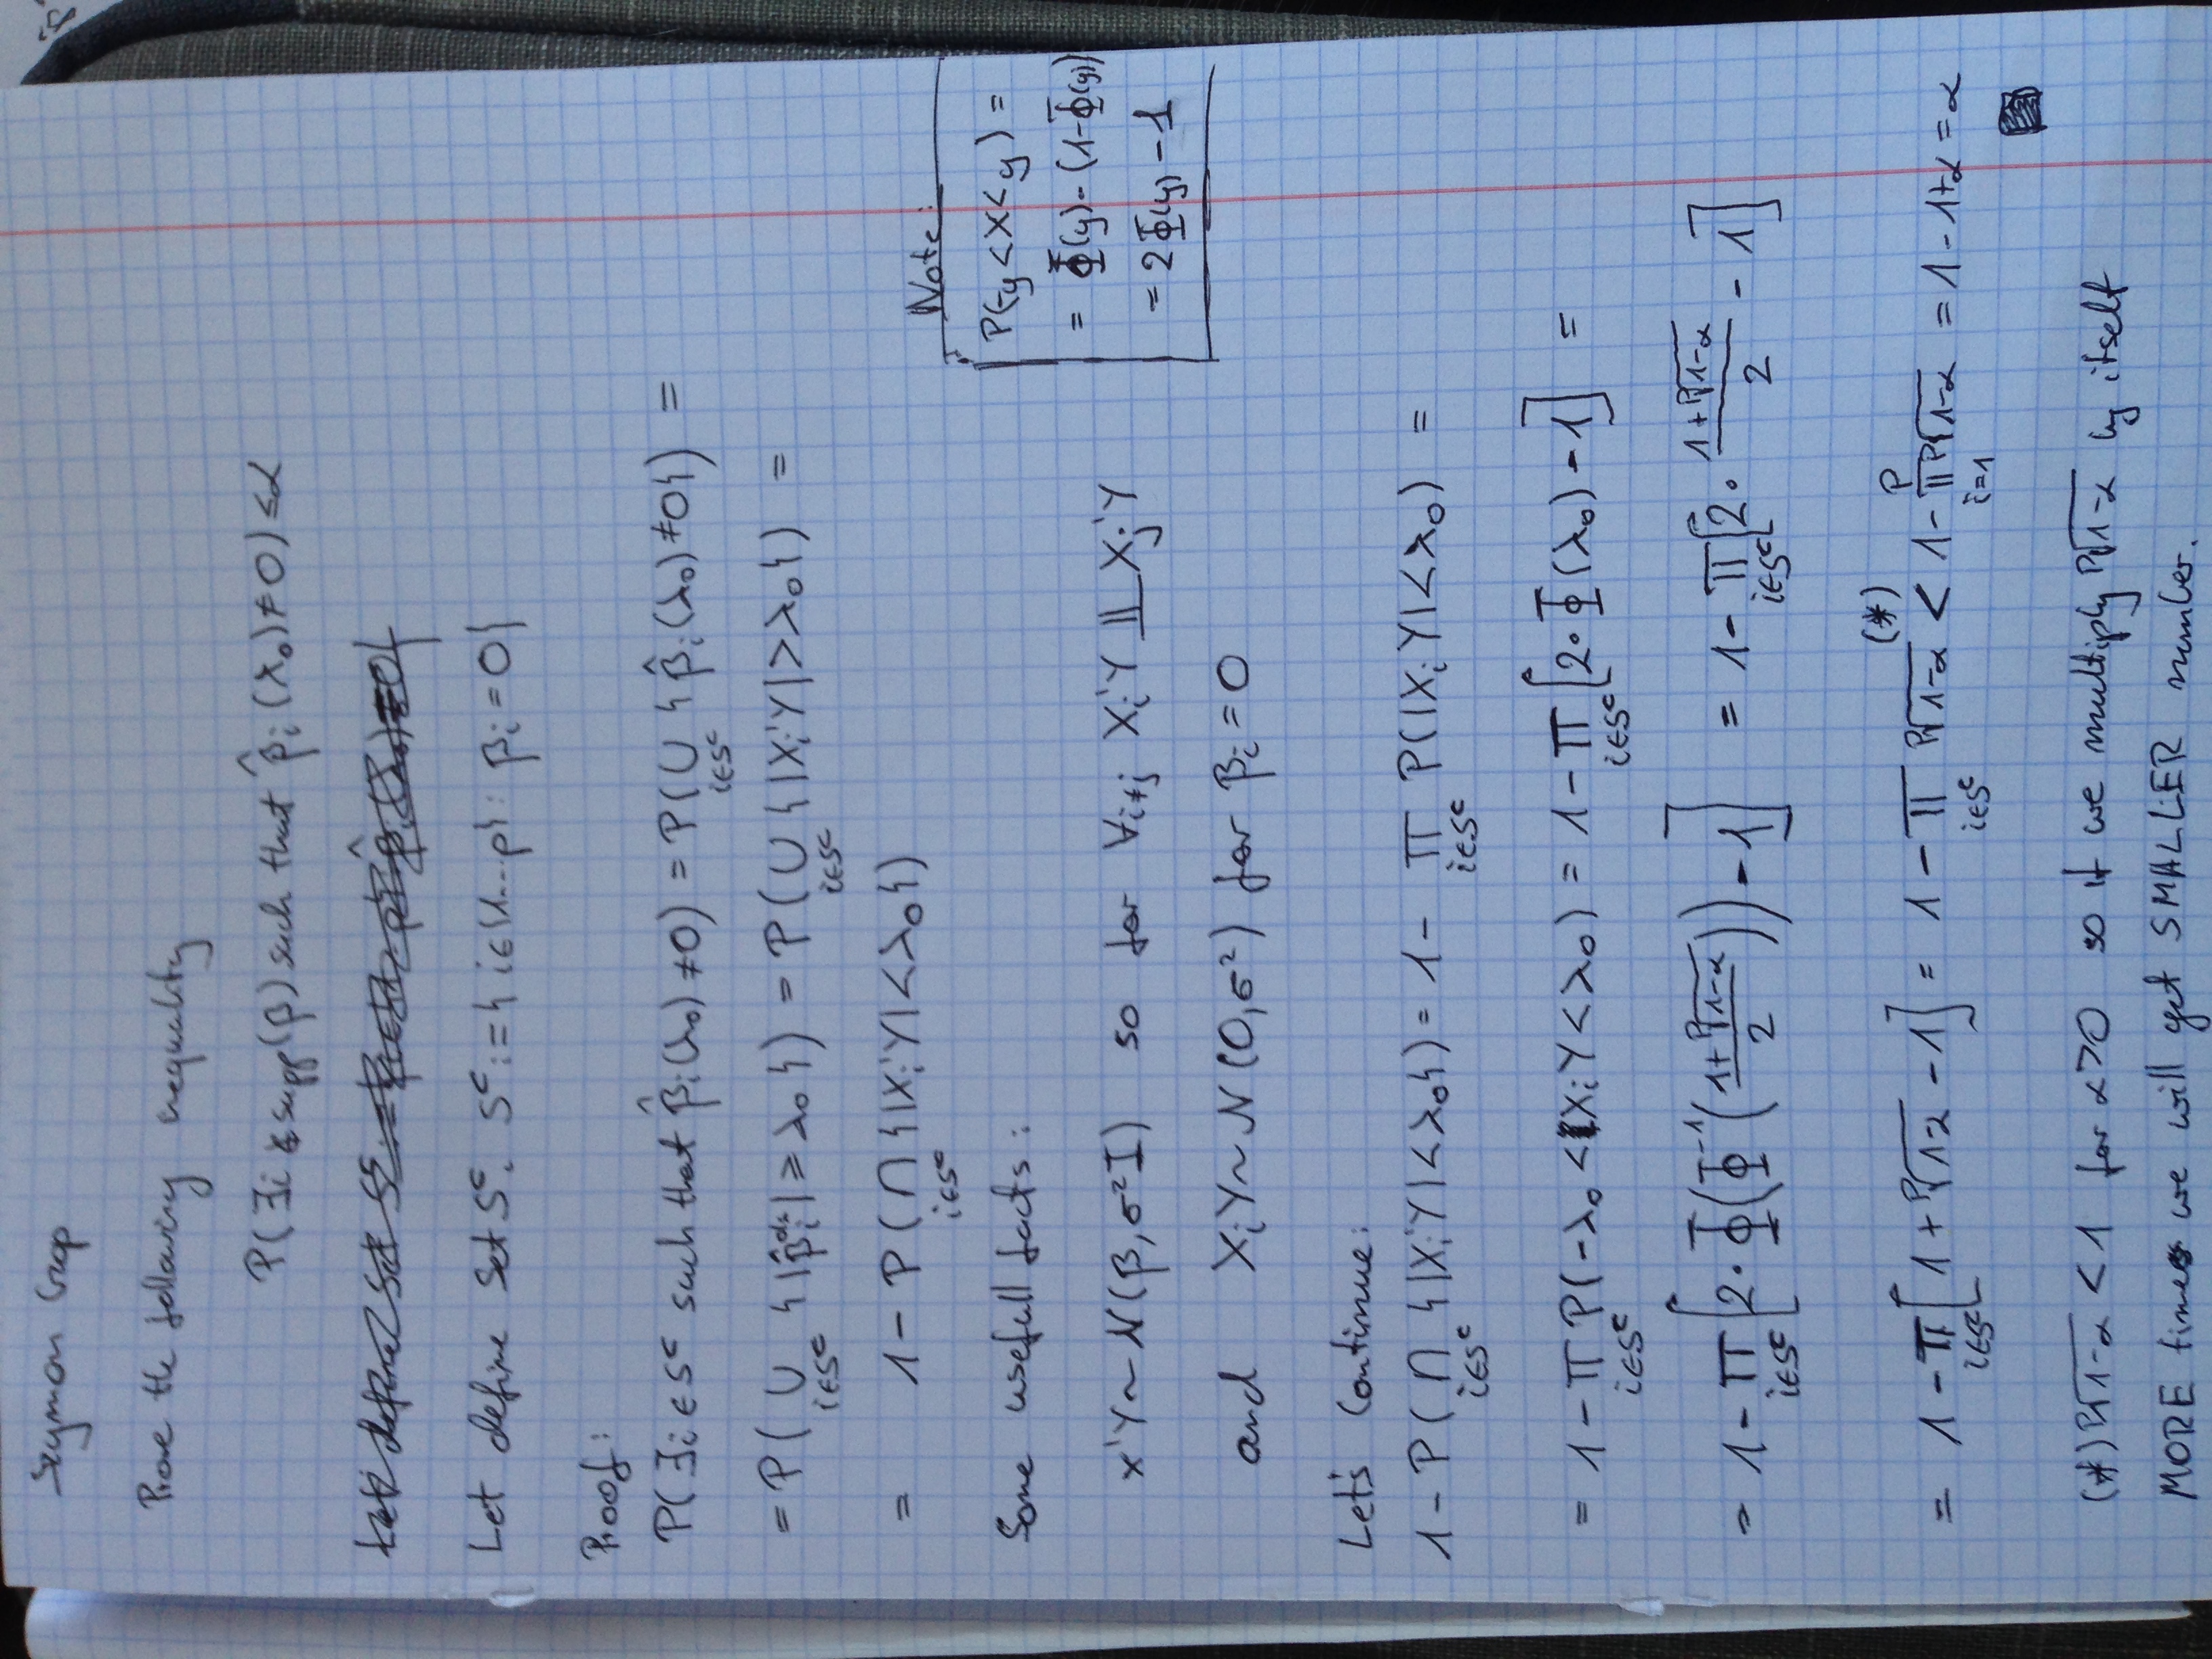 Szymon Grop
Prove the following inequality
P(∃i ∉ supp(β) such that β̂ᵢ(λ₀) ≠ 0) ≤ α
Let define Set Sᶜ. Sᶜ := { i∈{1...p} : βᵢ = 0}
Proof:
P(∃i ∈ Sᶜ such that β̂ᵢ(λ₀) ≠ 0) = P(∪_{i∈Sᶜ} {β̂ᵢ(λ₀) ≠ 0}) =
= P(∪_{i∈Sᶜ} {|β̂ᵢ^{ols}| ≥ λ₀}) = P(∪_{i∈Sᶜ} {|Xᵢ'Y| > λ₀}) =
= 1 - P(∩_{i∈Sᶜ} {|Xᵢ'Y| < λ₀})
Note:
P(-y < X < y) =
= Φ(y) - (1-Φ(y))
= 2Φ(y) - 1
Some usefull facts:
X'Y ~ N(β, σ²I) so for ∀_{i≠j} Xᵢ'Y ⫫ Xⱼ'Y
and XᵢY ~ N(0, σ²) for βᵢ = 0
Let's Continue:
1 - P(∩_{i∈Sᶜ} {|Xᵢ'Y| < λ₀}) = 1 - ∏_{i∈Sᶜ} P(|XᵢY| < λ₀) =
= 1 - ∏_{i∈Sᶜ} P(-λ₀ < XᵢY < λ₀) = 1 - ∏_{i∈Sᶜ} [2·Φ(λ₀) - 1] =
= 1 - ∏_{i∈Sᶜ} [2·Φ(Φ⁻¹((1+ᵖ√(1-α))/2)) - 1] = 1 - ∏_{i∈Sᶜ} [2·(1+ᵖ√(1-α))/2 - 1]
= 1 - ∏_{i∈Sᶜ} [1 + ᵖ√(1-α) - 1] = 1 - ∏_{i∈Sᶜ} ᵖ√(1-α) <^{(*)} 1 - ∏_{i=1}^{p} ᵖ√(1-α) = 1 - 1 + α = α
(*) ᵖ√(1-α) < 1 for α>0 so if we multiply ᵖ√(1-α) by itself
MORE times we will get SMALLER number.